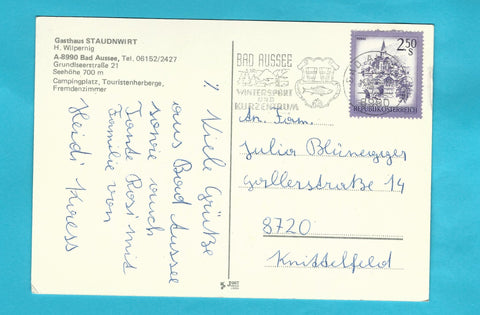 Gasthaus STAUDNWIRT
H. Wilpernig
A-8990 Bad Aussee, Tel. 06152/2427
Grundlseerstraße 21
Seehöhe 700 m
Campingplatz, Touristenherberge,
Fremdenzimmer
Viele Grüße
aus Bad Aussee
sowie auch
Tante Rosi mit
Familie von
Heidi Kress
BAD AUSSEE
WINTERSPORT
UND
KURZENTRUM
2.50 S
REPUBLIK ÖSTERREICH
An Fam.
Julia Blünegger
Gallerstraße 14
8720
Knittelfeld